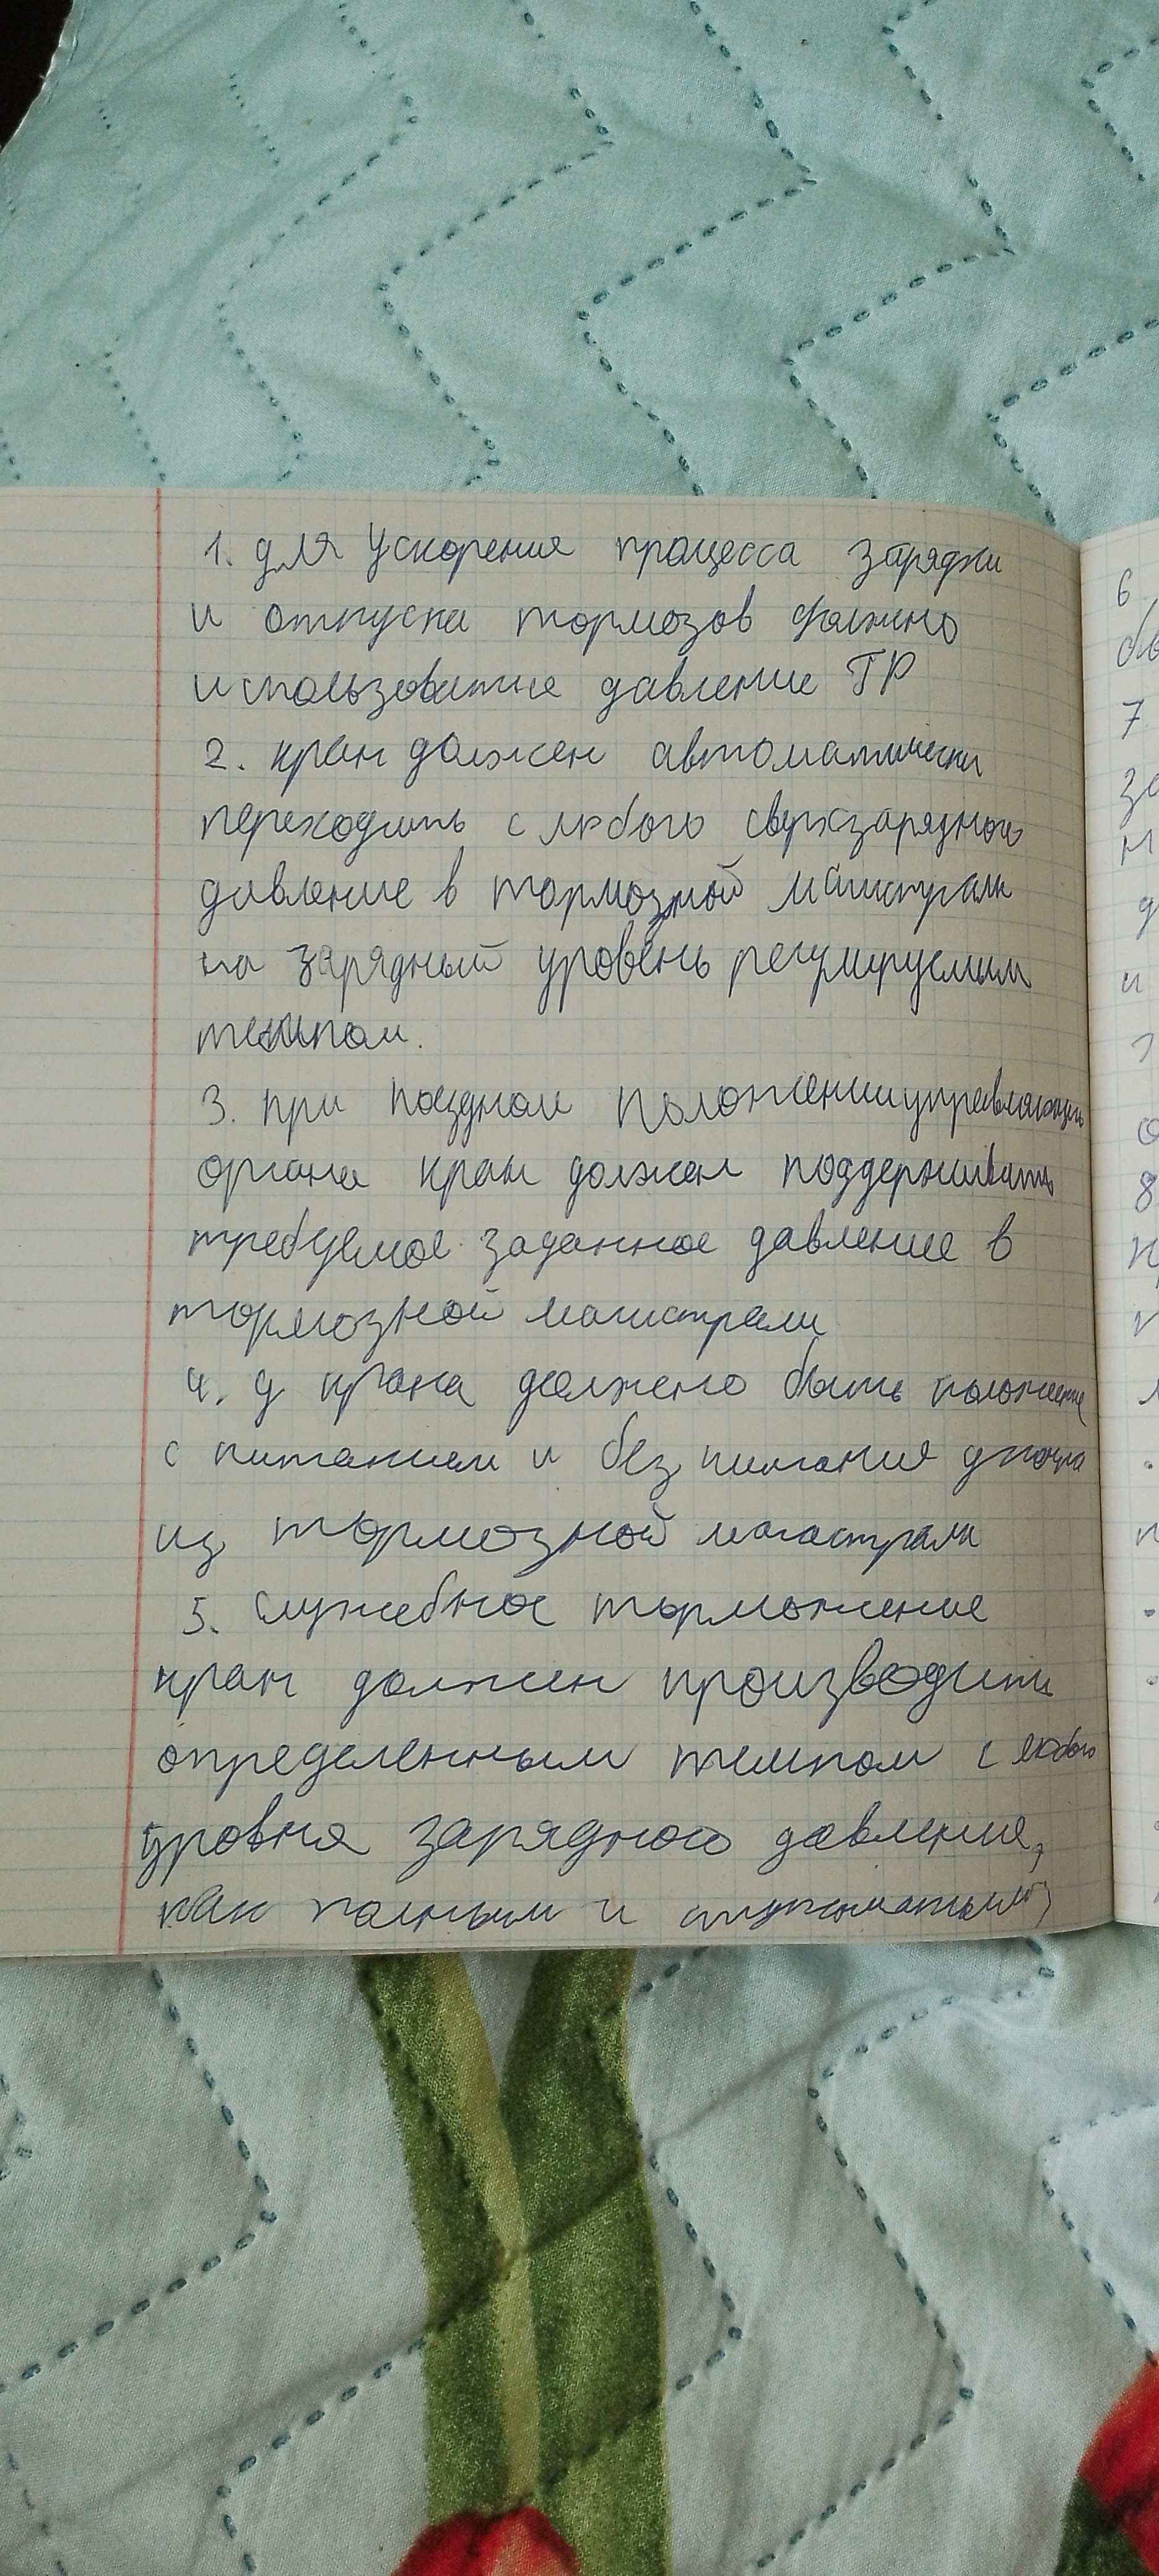 1. для ускорения процесса зарядки
и отпуска тормозов должно
использоватие давление ГР
2. кран должен автоматически
переходить с любого сверхзарядного
давление в тормозной магистрали
на зарядный уровень регулируемым
темпом.
3. при поездном положении управляющего
органа кран должен поддерживать
требуемое заданное давление в
тормозной магистрали
4. у крана должено быть положение
с питанием и без питания утечки
из тормозной магистрали
5. служебное торможение
кран должен производить
определенным темпом с любого
уровня зарядного давления,
как полным и
6
7
8